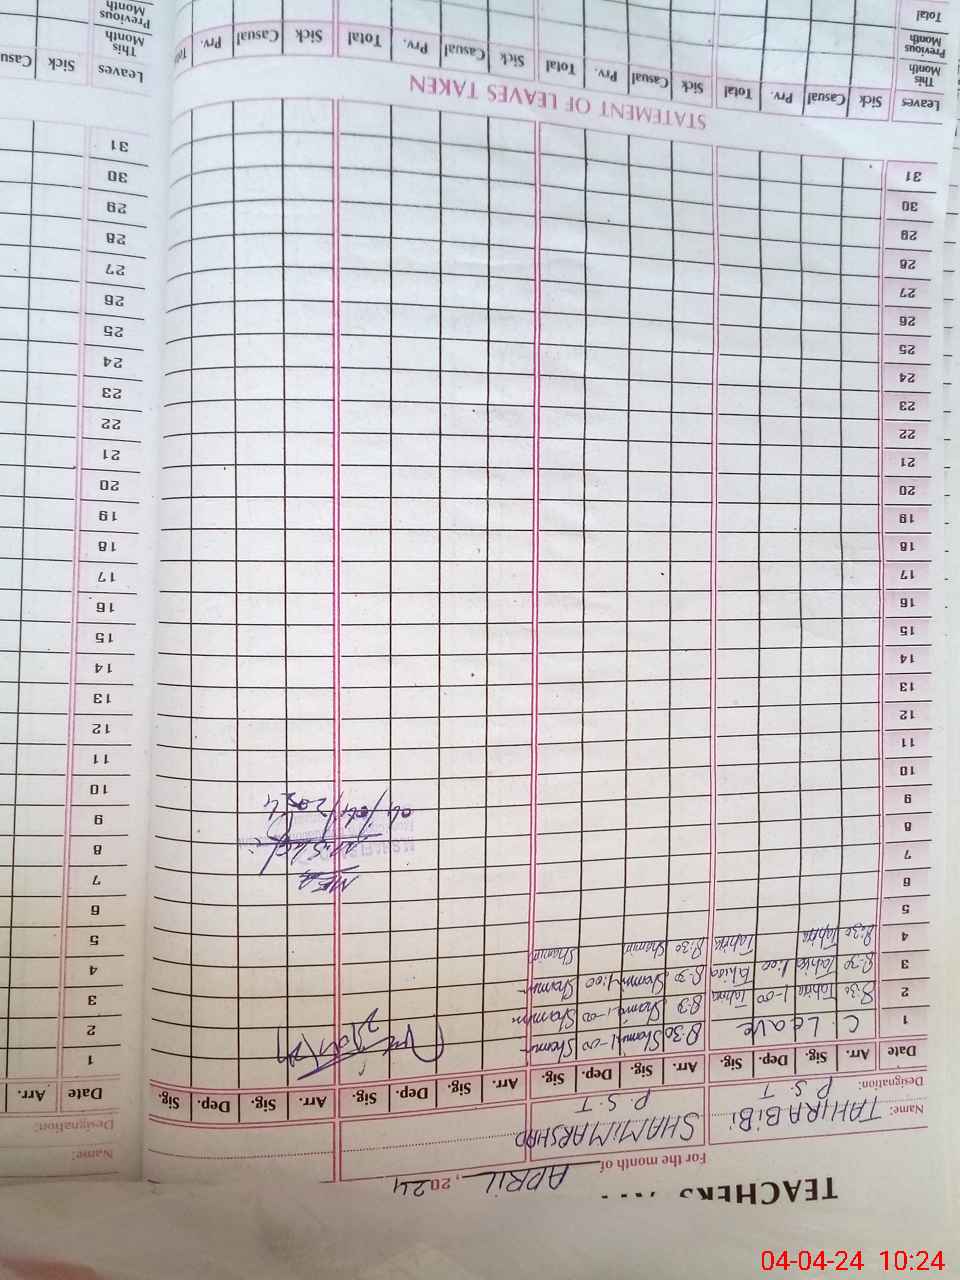 TEACHERS
For the month of APRIL, 2024
Name: TAHIRA BiBi SHAMiMARSHAD
Designation: P.S.T P.S.T
Date Arr. Sig. Dep. Sig. Arr. Sig. Dep. Sig. Arr. Sig. Dep. Sig. Arr. Sig. Dep. Sig.
1 C. Leave 8:30 Shamim 1-00 Shamim
2 8:30 Tahira 1-00 Tahira 8:3 Shamim 1-00 Shamim
3 8:30 Tahira 1:00 Tahira 8:30 Shamim 1:00 Shamim
4 8:30 Tahira Tahira 8:30 Shamim Shamim
5
6
7
MEA
8
9
04/04/2024
10
11
12
13
14
15
16
17
18
19
20
21
22
23
24
25
26
27
28
29
30
31
STATEMENT OF LEAVES TAKEN
Leaves Sick Casual Prv. Total Sick Casual Prv. Total Sick Casual Prv. Total Sick Casual Prv.
This Month
Previous Month
Total
Name:
Designation:
Date Arr.
1
2
3
4
5
6
7
8
9
10
11
12
13
14
15
16
17
18
19
20
21
22
23
24
25
26
27
28
29
30
31
Leaves Sick
This Month
Previous Month
04-04-24 10:24